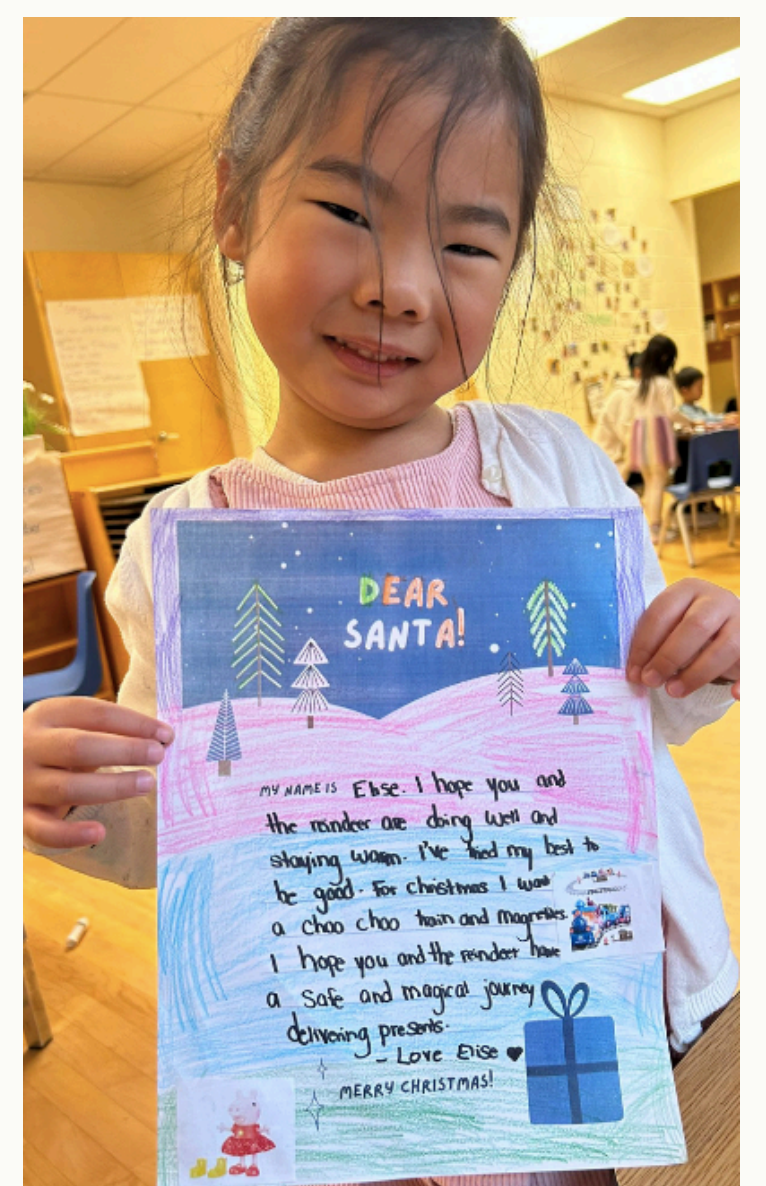 DEAR
SANTA!
MY NAME IS Elise. I hope you and
the reindeer are doing well and
staying warm. I've tried my best to
be good. For christmas I want
a choo choo train and magnetiles.
I hope you and the reindeer have
a safe and magical journey
delivering presents.
- Love Elise ♥
MERRY CHRISTMAS!